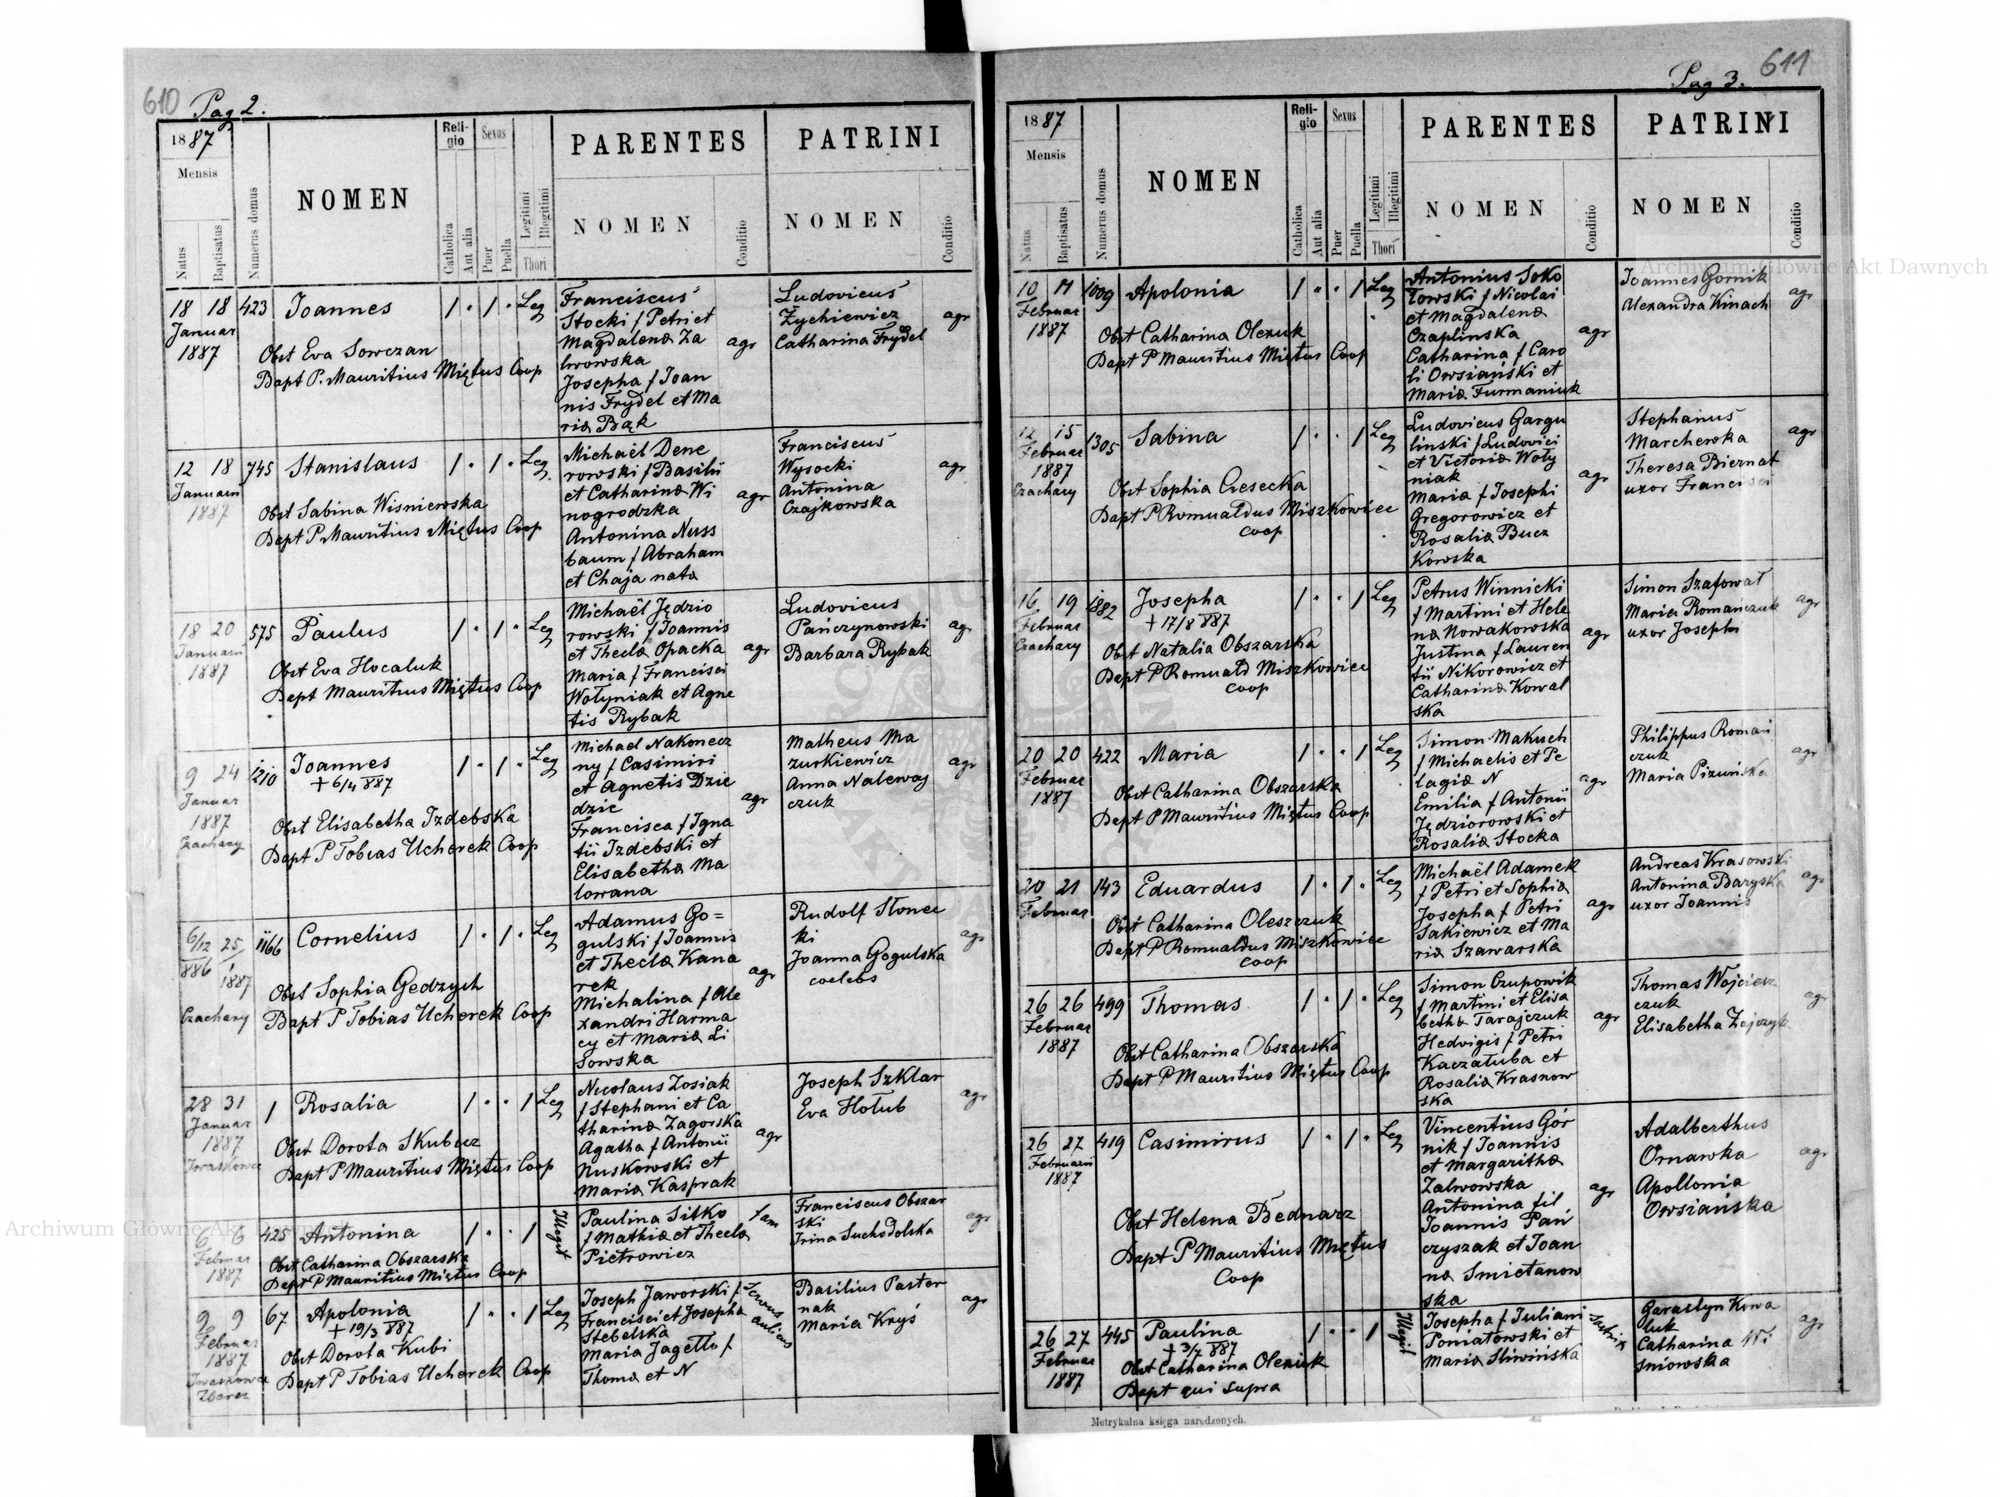 610 Pag 2.
1887
Mensis
Natus
Baptisatus
Numerus domus
NOMEN
Religio
Catholica
Aut alia
Sexus
Puer
Puella
Legitimi
Illegitimi
Thori
PARENTES
NOMEN
Conditio
PATRINI
NOMEN
Conditio
18 18 423 Joannes 1 · 1 · Leg
Januar
1887
Obst Eva Sowczan
Bapt P. Mauritius Miętus Coop
Franciscus
Stocki f Petri et
Magdalena Za
lwowska
Josepha f Joan
nis Frydel et Ma
ria Bąk
agr
Ludovicus
Zychiewicz
Catharina Frydel
agr
12 18 745 Stanislaus 1 · 1 · Leg
Januarii
1887
Obst Sabina Wisniewska
Bapt P Mauritius Miętus Coop
Michaël Dene
rowski f Basilii
et Catharina Wi
nogrodzka
Antonina Nuss
baum f Abraham
et Chaja nata
agr
Franciscus
Wysocki
Antonina
Czajkowska
agr
18 20 575 Paulus 1 · 1 · Leg
Januarii
1887
Obst Eva Hocaluk
Bapt Mauritius Miętus Coop
Michaël Jędzio
rowski f Joannis
et Thecla Opacka
Maria f Francisci
Wołyniak et Agne
tis Rybak
agr
Ludovicus
Pańczynowski
Barbara Rybak
agr
9 24 1210 Joannes 1 · 1 · Leg
+ 6/4 887
Januar
1887
Czachary
Obst Elisabetha Izdebska
Bapt P Tobias Ucherek Coop
Michael Nakonecz
ny f Casimiri
et Agnetis Dzie
dzic
Francisca f Igna
tii Izdebski et
Elisabetha Ma
lowana
agr
Matheus Ma
zurkiewicz
Anna Nalewaj
czuk
agr
6/12 886 25/1 1887 1166 Cornelius 1 · 1 · Leg
Czachary
Obst Sophia Gedzych
Bapt P Tobias Ucherek Coop
Adamus Go=
gulski f Joannis
et Thecla Kana
rek
Michalina f Ale
xandri Harma
cy et Maria Li
sowska
agr
Rudolf Słonec
ki
Joanna Gogulska
coelebs
agr
28 31 1 Rosalia 1 · · 1 Leg
Januar
1887
Obst Dorota Skubisz
Bapt P Mauritius Miętus Coop
Nicolaus Zosiak
f Stephani et Ca
tharina Zagorska
Agatha f Antonii
Nuskowski et
Maria Kasprak
agr
Joseph Szklar
Eva Hołub
agr
6 6 425 Antonina 1 · · 1 Illegit
Februar
1887
Obst Catharina Obszarska
Bapt P Mauritius Miętus Coop
Paulina Sitko
f Mathia et Thecla
Pietrowicz
fam
Franciscus Obszar
ski
Irina Suchodolska
agr
9 9 67 Apolonia 1 · · 1 Leg
+ 19/3 887
Februar
1887
Obst Dorota Kubi
Bapt P Tobias Ucherek Coop
Joseph Jaworski f
Francisci et Josepha
Stebelska
Maria Jagello f
Thoma et N
Servus
aulicus
Basilius Paster
nak
Maria Kryś
agr
Pag 3. 611
1887
Mensis
Natus
Baptisatus
Numerus domus
NOMEN
Religio
Catholica
Aut alia
Sexus
Puer
Puella
Legitimi
Illegitimi
Thori
PARENTES
NOMEN
Conditio
PATRINI
NOMEN
Conditio
10 11 1009 Apolonia 1 · · 1 Leg
Februar
1887
Obst Catharina Olexuk
Bapt P Mauritius Miętus Coop
Antonius Soko
łowski f Nicolai
et Magdalena
Czaplinska
Catharina f Caro
li Owsiański et
Maria Furmaniuk
agr
Joannes Gornik
Alexandra Kinach
agr
12 15 1305 Sabina 1 · · 1 Leg
Februar
1887
Czachary
Obst Sophia Czesecka
Bapt P Romualdus Miszkowicz
coop
Ludovicus Gargu
linski f Ludovici
et Victoria Woły
niak
Maria f Josephi
Gregorowicz et
Rosalia Bucz
kowska
agr
Stephanus
Marchewka
Theresa Biernat
uxor Francisci
agr
16 19 1882 Josepha 1 · · 1 Leg
+ 17/8 887
Februar
Czachary
Obst Natalia Obszarska
Bapt P Romuald Miszkowicz
coop
Petrus Winnicki
f Martini et Hele
na Nowakowska
Justina f Lauren
tii Nikorowicz et
Catharina Kowal
ska
agr
Simon Szafował
Maria Romańczuk
uxor Josephi
agr
20 20 422 Maria 1 · · 1 Leg
Februar
1887
Obst Catharina Obszarska
Bapt P Mauritius Miętus Coop
Simon Makuch
f Michaelis et Pe
lagia N
Emilia f Antonii
Jędziorowski et
Rosalia Stocka
agr
Philippus Roman
czuk
Maria Pizuńska
agr
20 21 143 Eduardus 1 · 1 · Leg
Februar
Obst Catharina Oleszczuk
Bapt P Romualdus Miszkowicz
coop
Michaël Adamek
f Petri et Sophia
Josepha f Petri
Sakiewicz et Ma
ria Szawarska
agr
Andreas Krasowski
Antonina Baryska
uxor Joannis
agr
26 26 499 Thomas 1 · 1 · Leg
Februar
1887
Obst Catharina Obszarska
Bapt P Mauritius Miętus Coop
Simon Czupowik
f Martini et Elisa
betha Tarajczuk
Hedvigis f Petri
Kaczałuba et
Rosalia Krasnow
ska
agr
Thomas Wojciesz
czuk
Elisabetha Zajczyk
agr
26 27 419 Casimirus 1 · 1 · Leg
Februarii
1887
Obst Helena Bednarz
Bapt P Mauritius Miętus
Coop
Vincentius Gór
nik f Joannis
et Margaritha
Zalwowska
Antonina fil
Joannis Pań
czyszak et Joan
na Smietanow
ska
agr
Adalberthus
Ornawka
Apollonia
Owsiańska
agr
26 27 445 Paulina 1 · · 1 Illegit
+ 3/7 887
Februar
1887
Obst Catharina Olexiuk
Bapt qui supra
Josepha f Juliani
Poniatowski et
Maria Sliwińska
Garaslyn Kowa
luk
Catharina Wi
śniowska
agr
Metrykalna księga narodzonych.
Archiwum Główne Akt Dawnych
Archiwum Główne Akt Dawnych